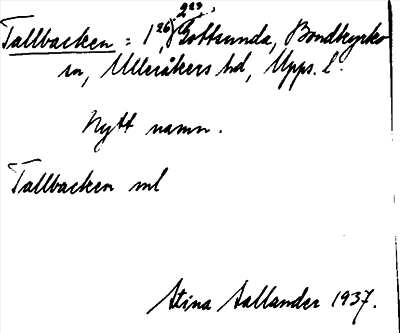 Tallbacken = 1²⁶, Gottsunda, Bondkyrko
sn, Ulleråkers hd, Upps. l.
Nytt namn.
Tallbacken ml
Stina Aallander 1937.